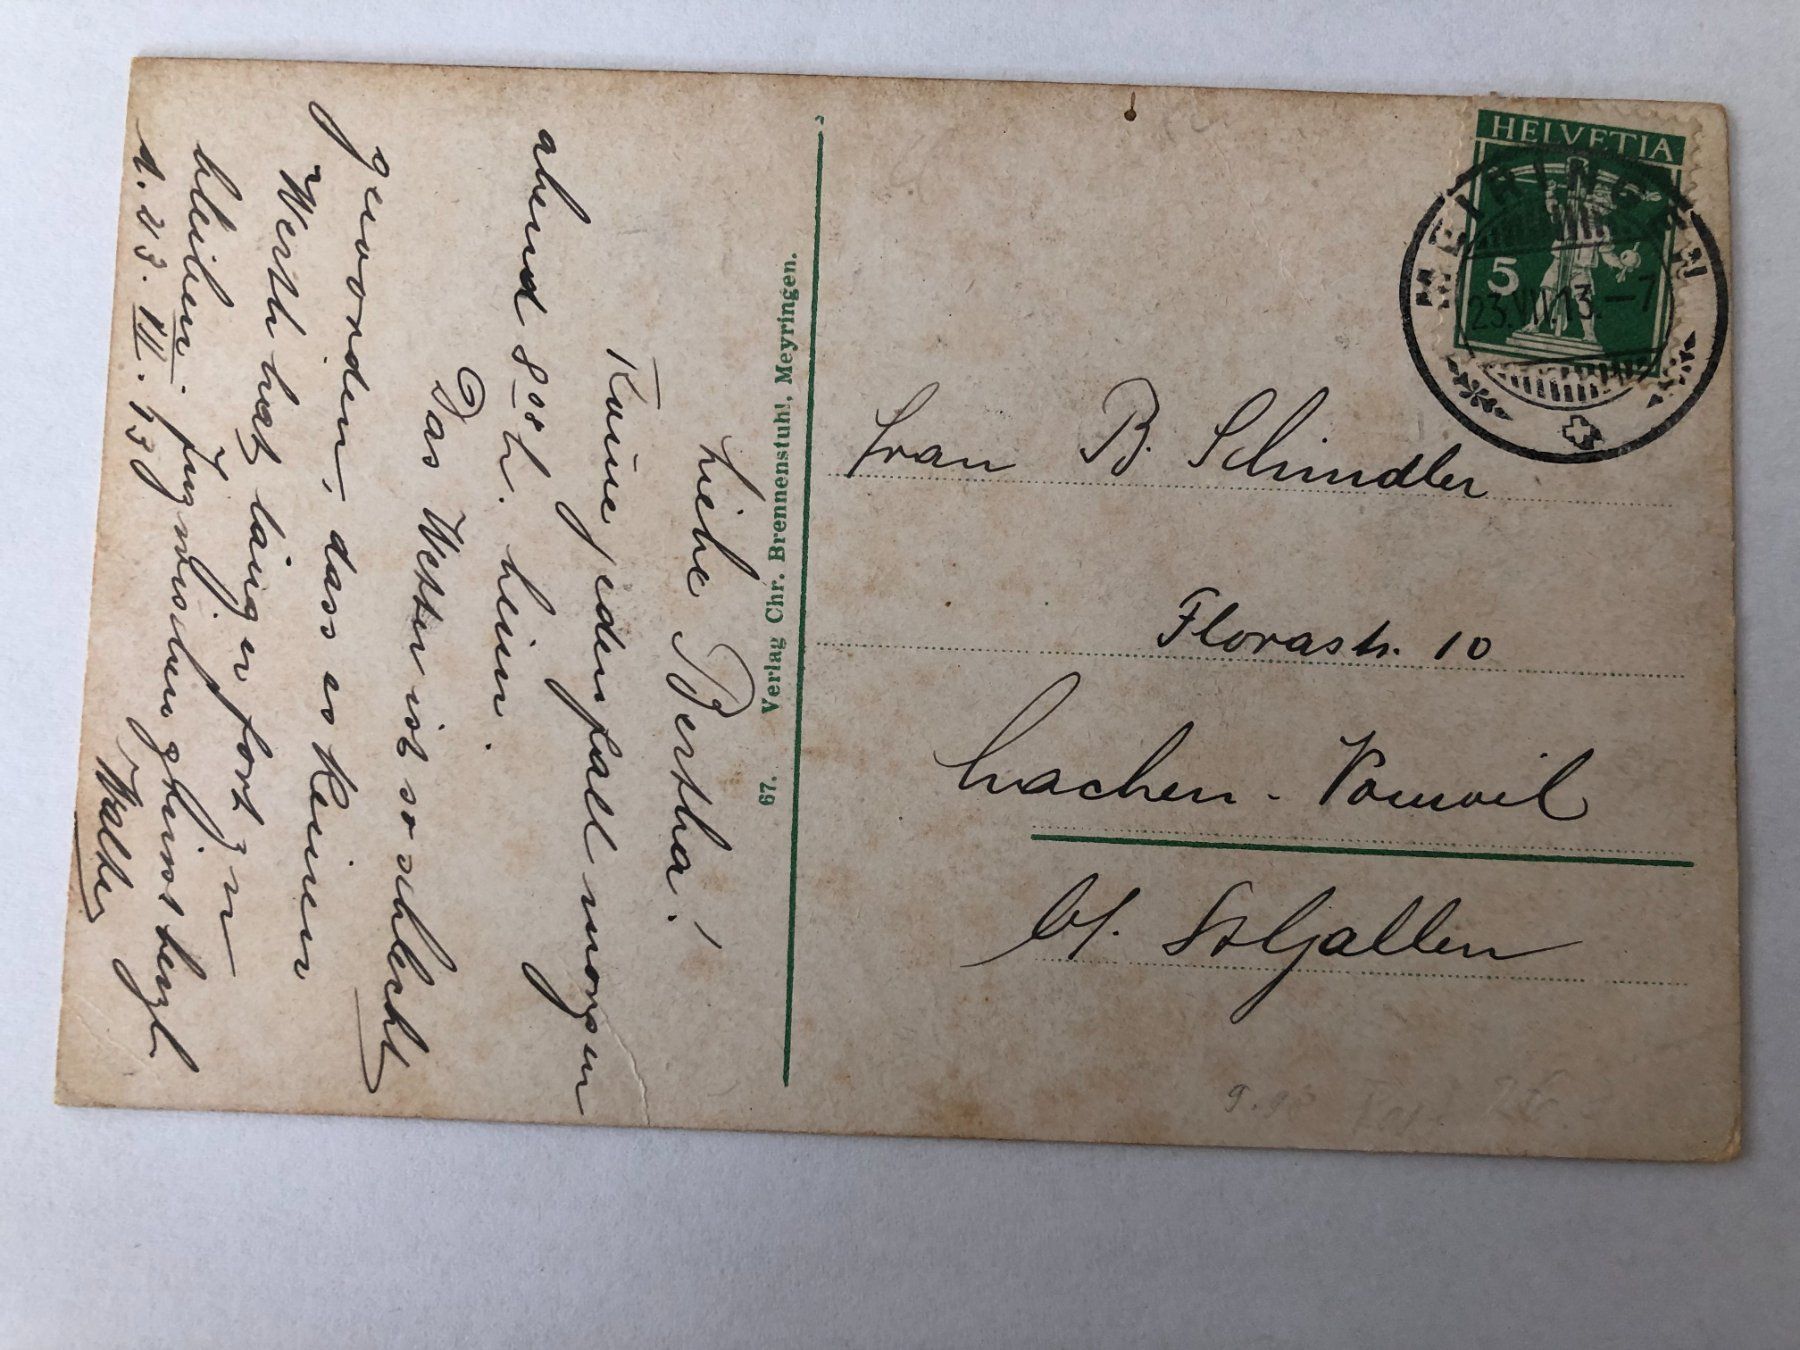 HELVETIA
5
MEIRINGEN
23.VII.13.–7
Frau B. Schindler
Florastr. 10
Lachen - Vonwil
b/. St Gallen
67. Verlag Chr. Brennenstuhl, Meyringen.
Liebe Bertha!
Kome jedenfall morgen
abend 8 00 h. heim.
Das Wetter ist so schlecht
geworden, dass es keinen
Werth hat länger fort zu
bleiben. Inzwischen grüsst herzl
d. 23. VII. 13 Walter